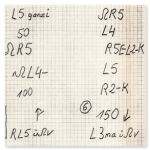 L5 ganzi
50
ΩR5
ΩL4-
100
RL5 üΩv
ΩR5
L4
R5EL2-K
L5
R2-K
6 150 ↓
L3 ma üΩv